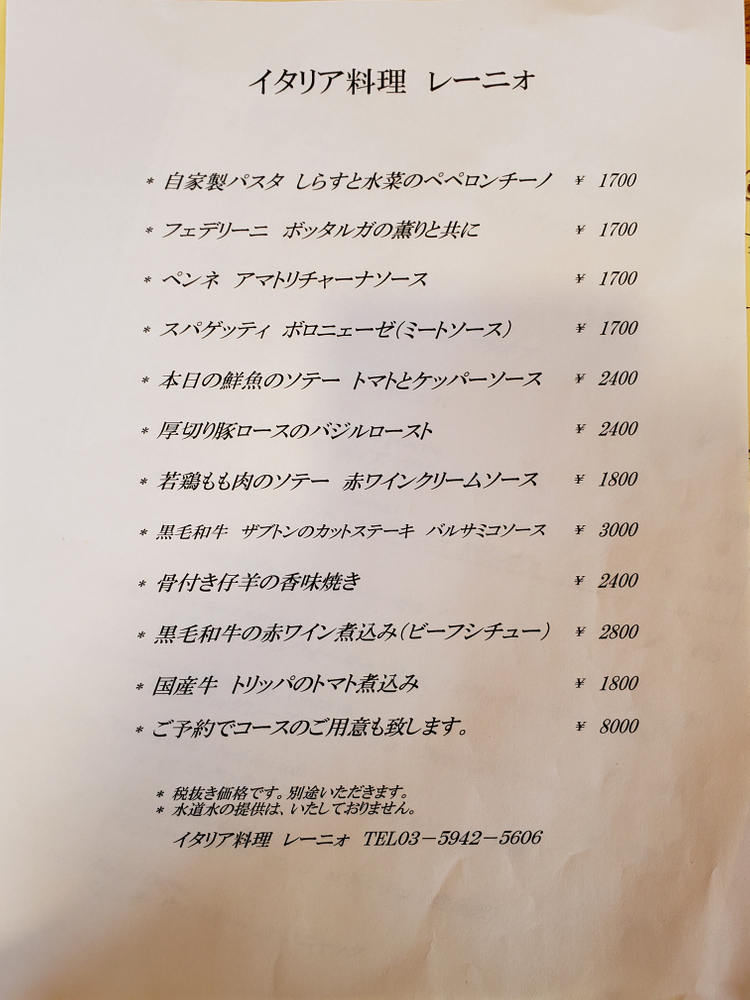 イタリア料理 レーニォ
* 自家製パスタ しらすと水菜のペペロンチーノ ¥ 1700
* フェデリーニ ボッタルガの薫りと共に ¥ 1700
* ペンネ アマトリチャーナソース ¥ 1700
* スパゲッティ ボロニェーゼ(ミートソース) ¥ 1700
* 本日の鮮魚のソテー トマトとケッパーソース ¥ 2400
* 厚切り豚ロースのバジルロースト ¥ 2400
* 若鶏もも肉のソテー 赤ワインクリームソース ¥ 1800
* 黒毛和牛 ザブトンのカットステーキ バルサミコソース ¥ 3000
* 骨付き仔羊の香味焼き ¥ 2400
* 黒毛和牛の赤ワイン煮込み(ビーフシチュー) ¥ 2800
* 国産牛 トリッパのトマト煮込み ¥ 1800
* ご予約でコースのご用意も致します。 ¥ 8000
* 税抜き価格です。別途いただきます。
* 水道水の提供は、いたしておりません。
イタリア料理 レーニォ TEL03-5942-5606